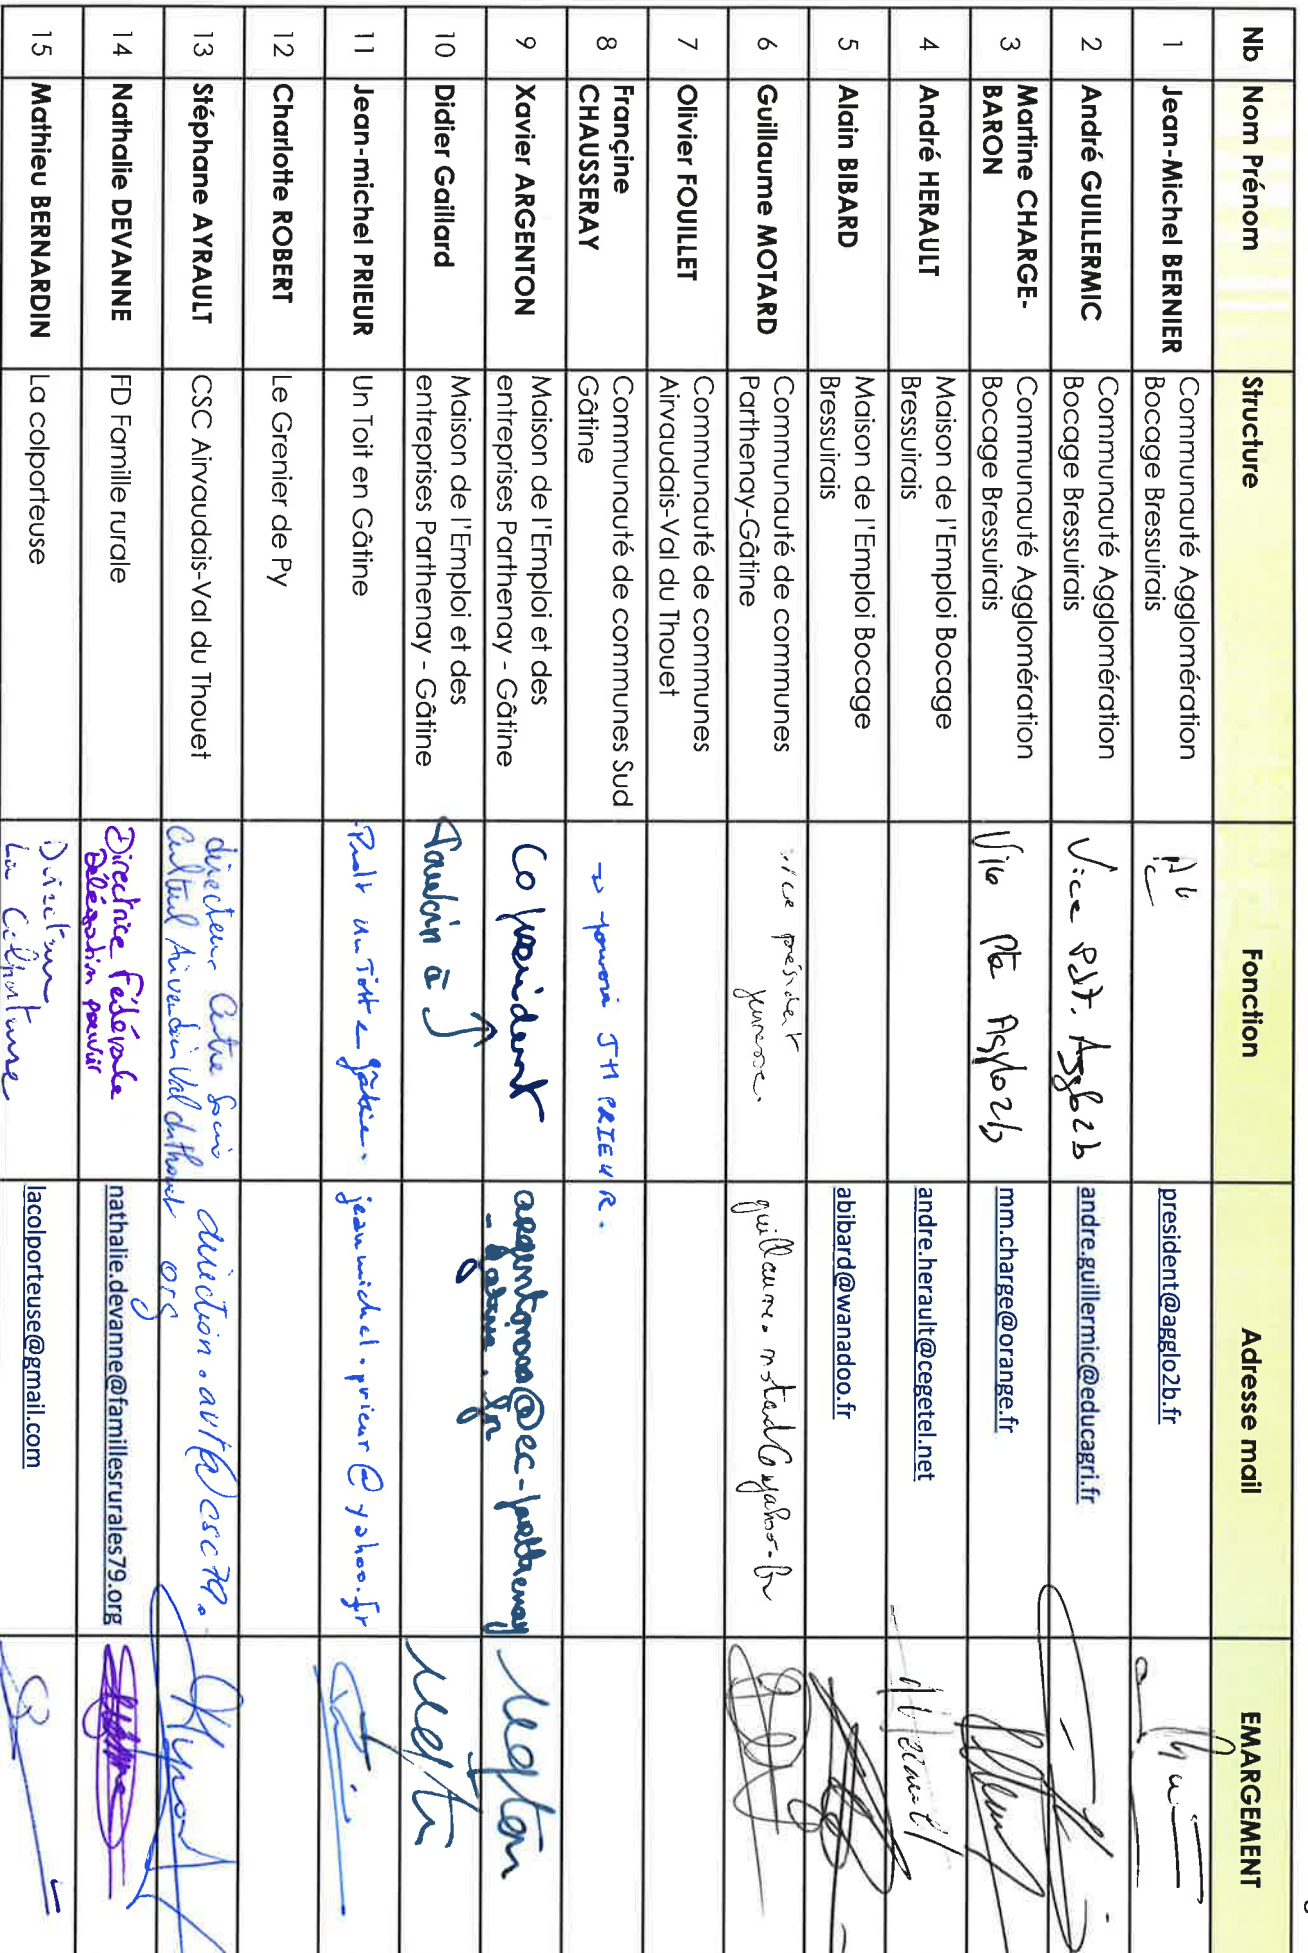 Nb Nom Prénom Structure Fonction Adresse mail EMARGEMENT
1 Jean-Michel BERNIER Communauté Agglomération
Bocage Bressuirais
president@agglo2b.fr
2 André GUILLERMIC Communauté Agglomération
Bocage Bressuirais
Vice Pdt. Agglo2b
andre.guillermic@educagri.fr
3 Martine CHARGE-
BARON
Communauté Agglomération
Bocage Bressuirais
Pte Agglo2b
mm.charge@orange.fr
4 André HERAULT Maison de l'Emploi Bocage
Bressuirais
andre.herault@cegetel.net
5 Alain BIBARD Maison de l'Emploi Bocage
Bressuirais
abibard@wanadoo.fr
6 Guillaume MOTARD Communauté de communes
Parthenay-Gâtine
vice président
jeunesse.
guillaume.motard@yahoo.fr
7 Olivier FOUILLET Communauté de communes
Airvaudais-Val du Thouet
8 Françine
CHAUSSERAY
Communauté de communes Sud
Gâtine
→ pouvoir JM PRIEUR.
9 Xavier ARGENTON Maison de l'Emploi et des
entreprises Parthenay - Gâtine
Co président
@cc-parthenay
-gatine.fr
10 Didier Gaillard Maison de l'Emploi et des
entreprises Parthenay - Gâtine
Pouvoir à
11 Jean-michel PRIEUR Un Toit en Gâtine
Pdt un Toit en gâtine.
jeanmichel.prieur@yahoo.fr
12 Charlotte ROBERT Le Grenier de Py
13 Stéphane AYRAULT CSC Airvaudais-Val du Thouet
directeur Centre Socio
Culturel Airvaudais Val du Thouet
direction.avt@csc79.
org
14 Nathalie DEVANNE FD Famille rurale
Directrice Fédérale
Délégation pouvoir
nathalie.devanne@famillesrurales79.org
15 Mathieu BERNARDIN La colporteuse
Directeur
La Colporteuse
lacolporteuse@gmail.com